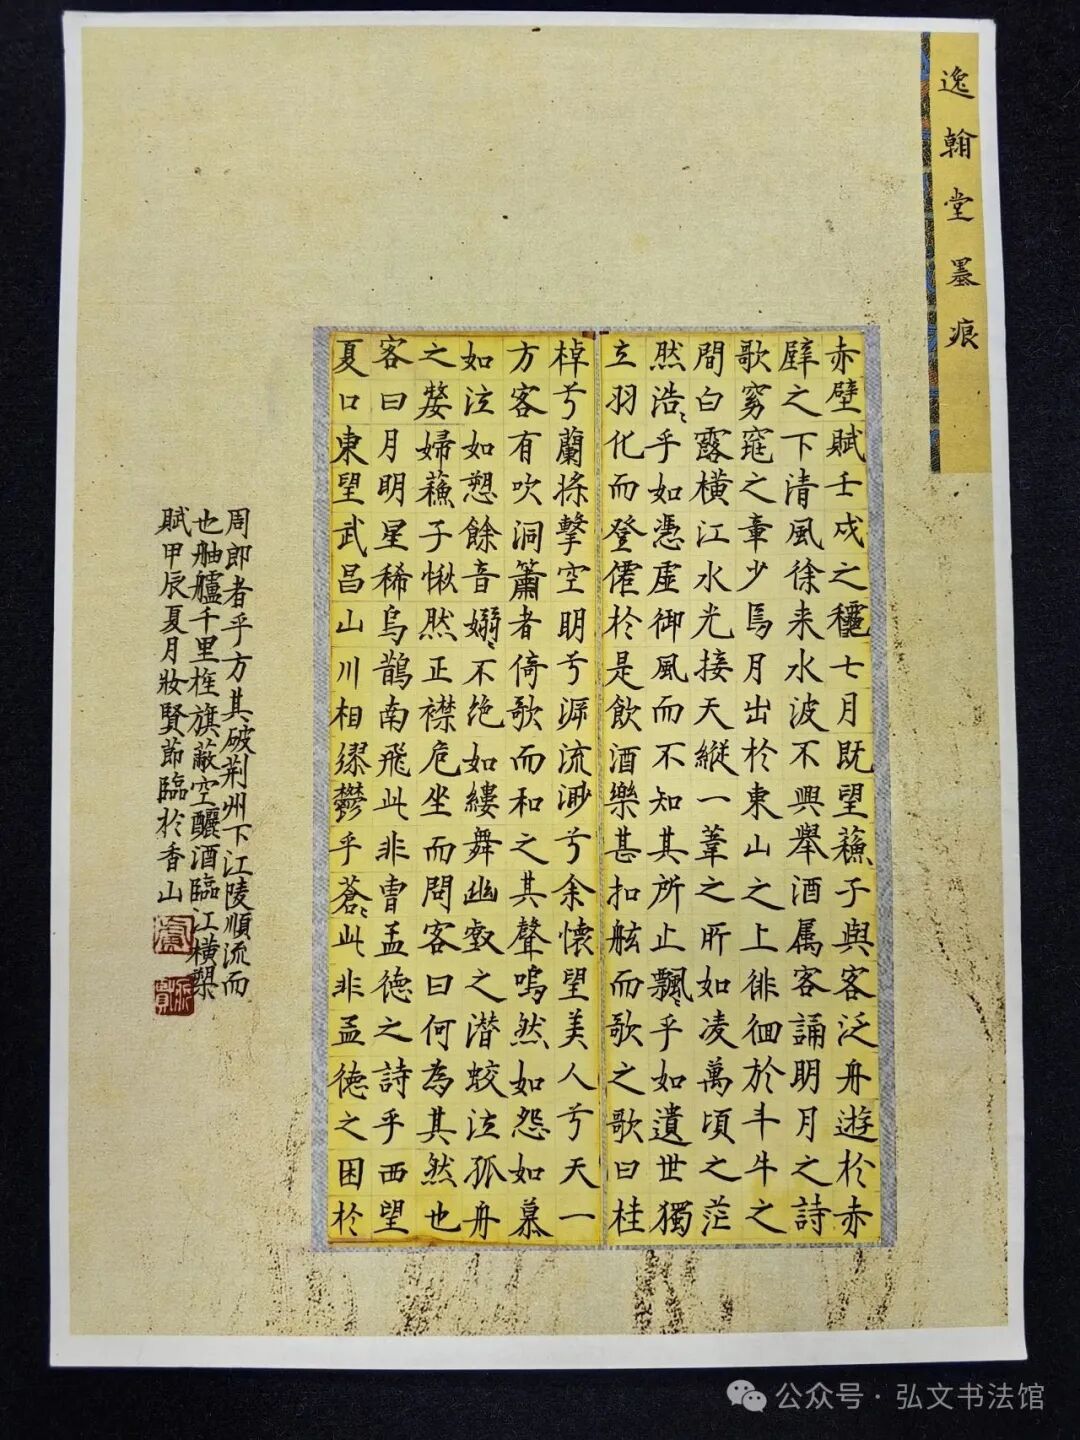 逸翰堂墨痕
赤壁賦壬戌之龝七月既望蘓子與客泛舟遊於赤
壁之下清風徐来水波不興舉酒属客誦明月之詩
歌窈窕之章少焉月出於東山之上徘徊於斗牛之
間白露橫江水光接天縱一葦之所如凌萬頃之茫
然浩〻乎如憑虛御風而不知其所止飄〻乎如遺世獨
立羽化而登僊於是飲酒樂甚扣舷而歌之歌曰桂
棹兮蘭槳擊空明兮泝流渺兮余懷望美人兮天一
方客有吹洞簫者倚歌而和之其聲嗚然如怨如慕
如泣如愬餘音嫋〻不绝如縷舞幽壑之潜蛟泣孤舟
之嫠婦蘓子愀然正襟危坐而問客曰何為其然也
客曰月明星稀烏鵲南飛此非曹孟德之詩乎西望
夏口東望武昌山川相繆鬱乎蒼〻此非孟德之困於
周郎者乎方其破荆州下江陵順流而
也舳艫千里旌旗蔽空釃酒臨江橫槊
賦甲辰夏月妝賢節臨於香山
公众号·弘文书法馆